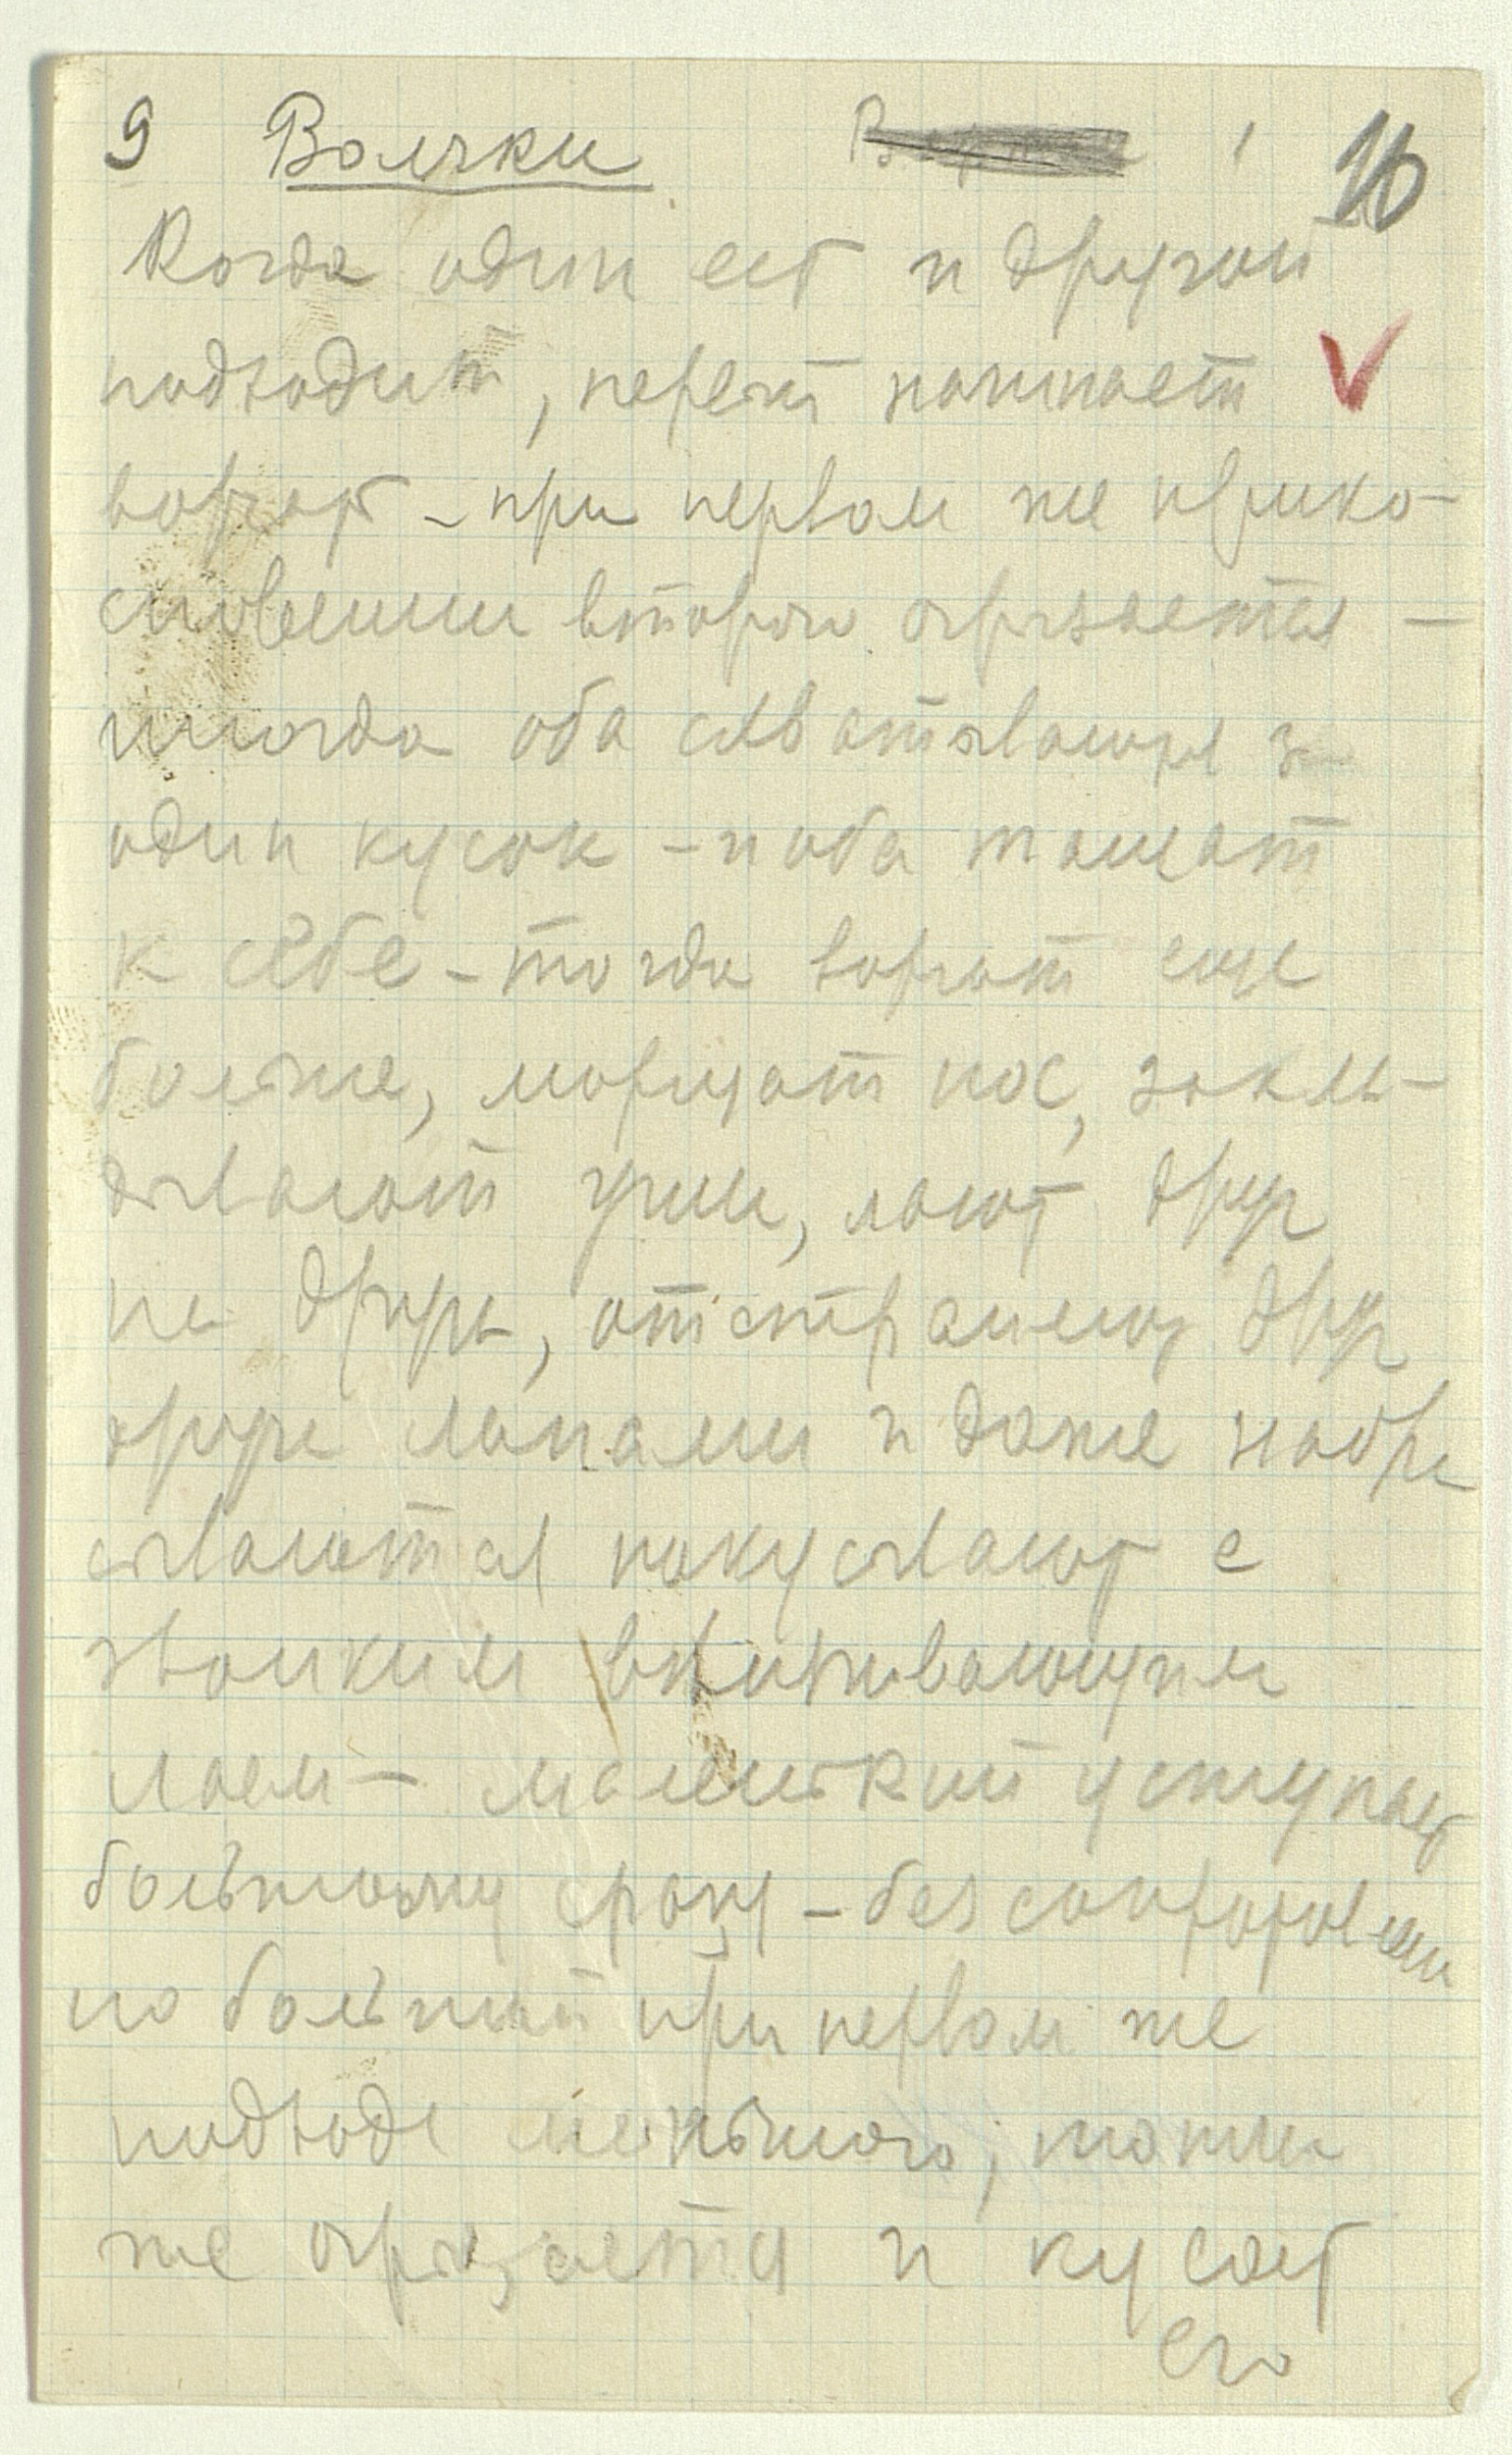 9 Волчки 16
Когда один ест и другой
подходит, первый начинает
ворчат - при первом же прико-
сновении второго огрызается -
иногда оба схватываются за
один кусок - и оба тащат
к себе - тогда ворчат еще
больше, морщат нос, закла-
дывают уши, лают друг
на друга, отстраняют друг
друга лапами и даже набра
сываются покусывают с
звонким взвизгивающим
лаем - маленький уступает
большому сразу - без сопротивления
но больший при первом же
подходе меньшого, тотчас
же огрызается и кусает
его